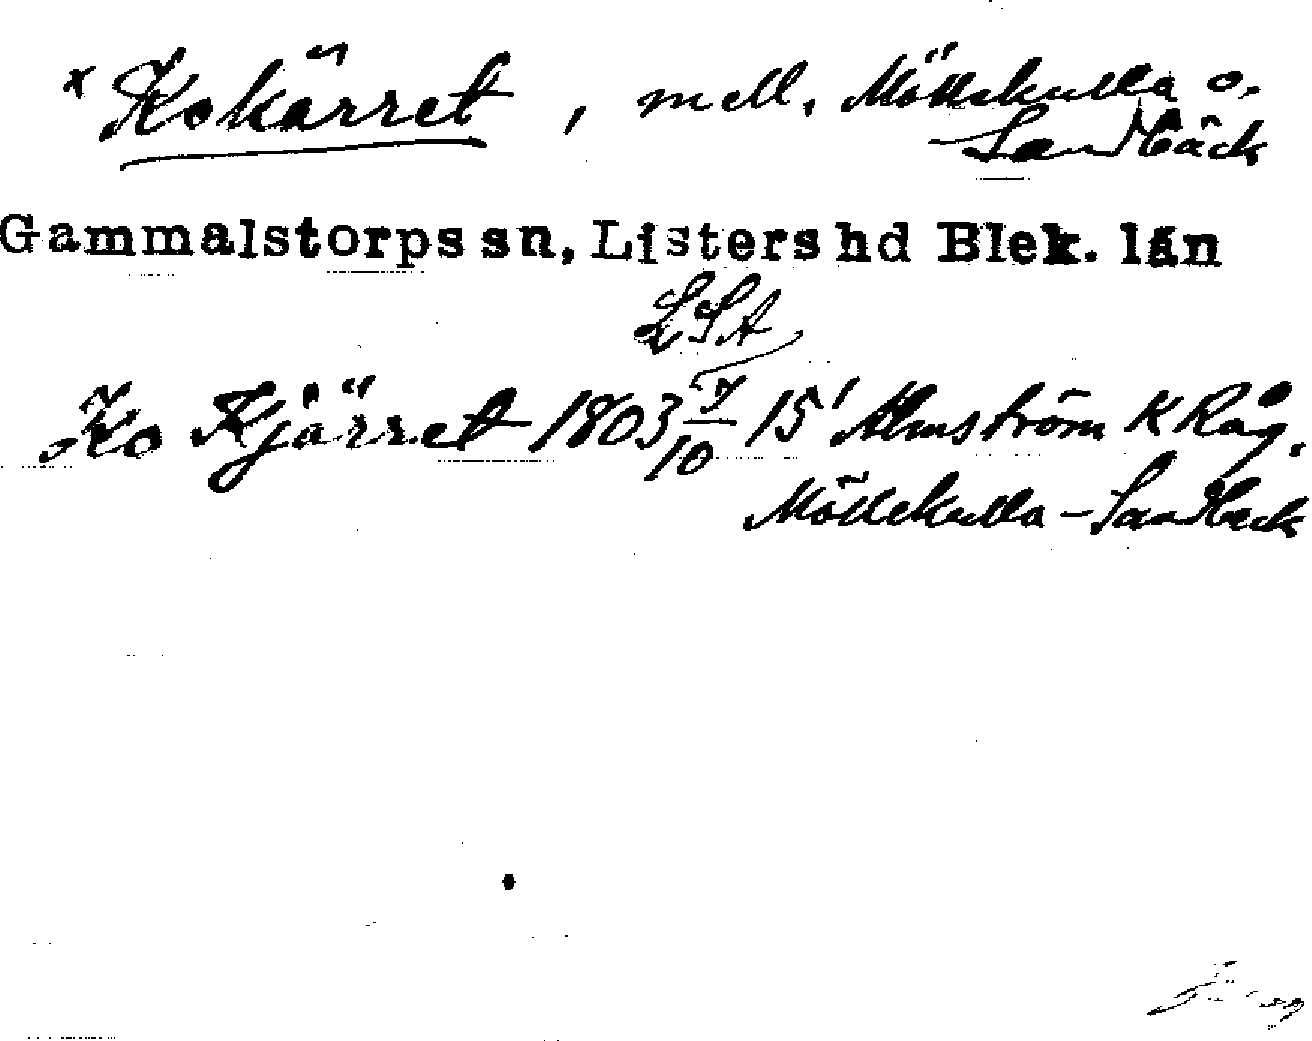 x Kokärret, mell. Möllekulla o.
Sandbäck
Gammalstorps sn, Listers hd Blek. län
LSA
Ko Kjärret 1803 7/10 15' Almström K Råg.
Möllekulla - Sandbeck